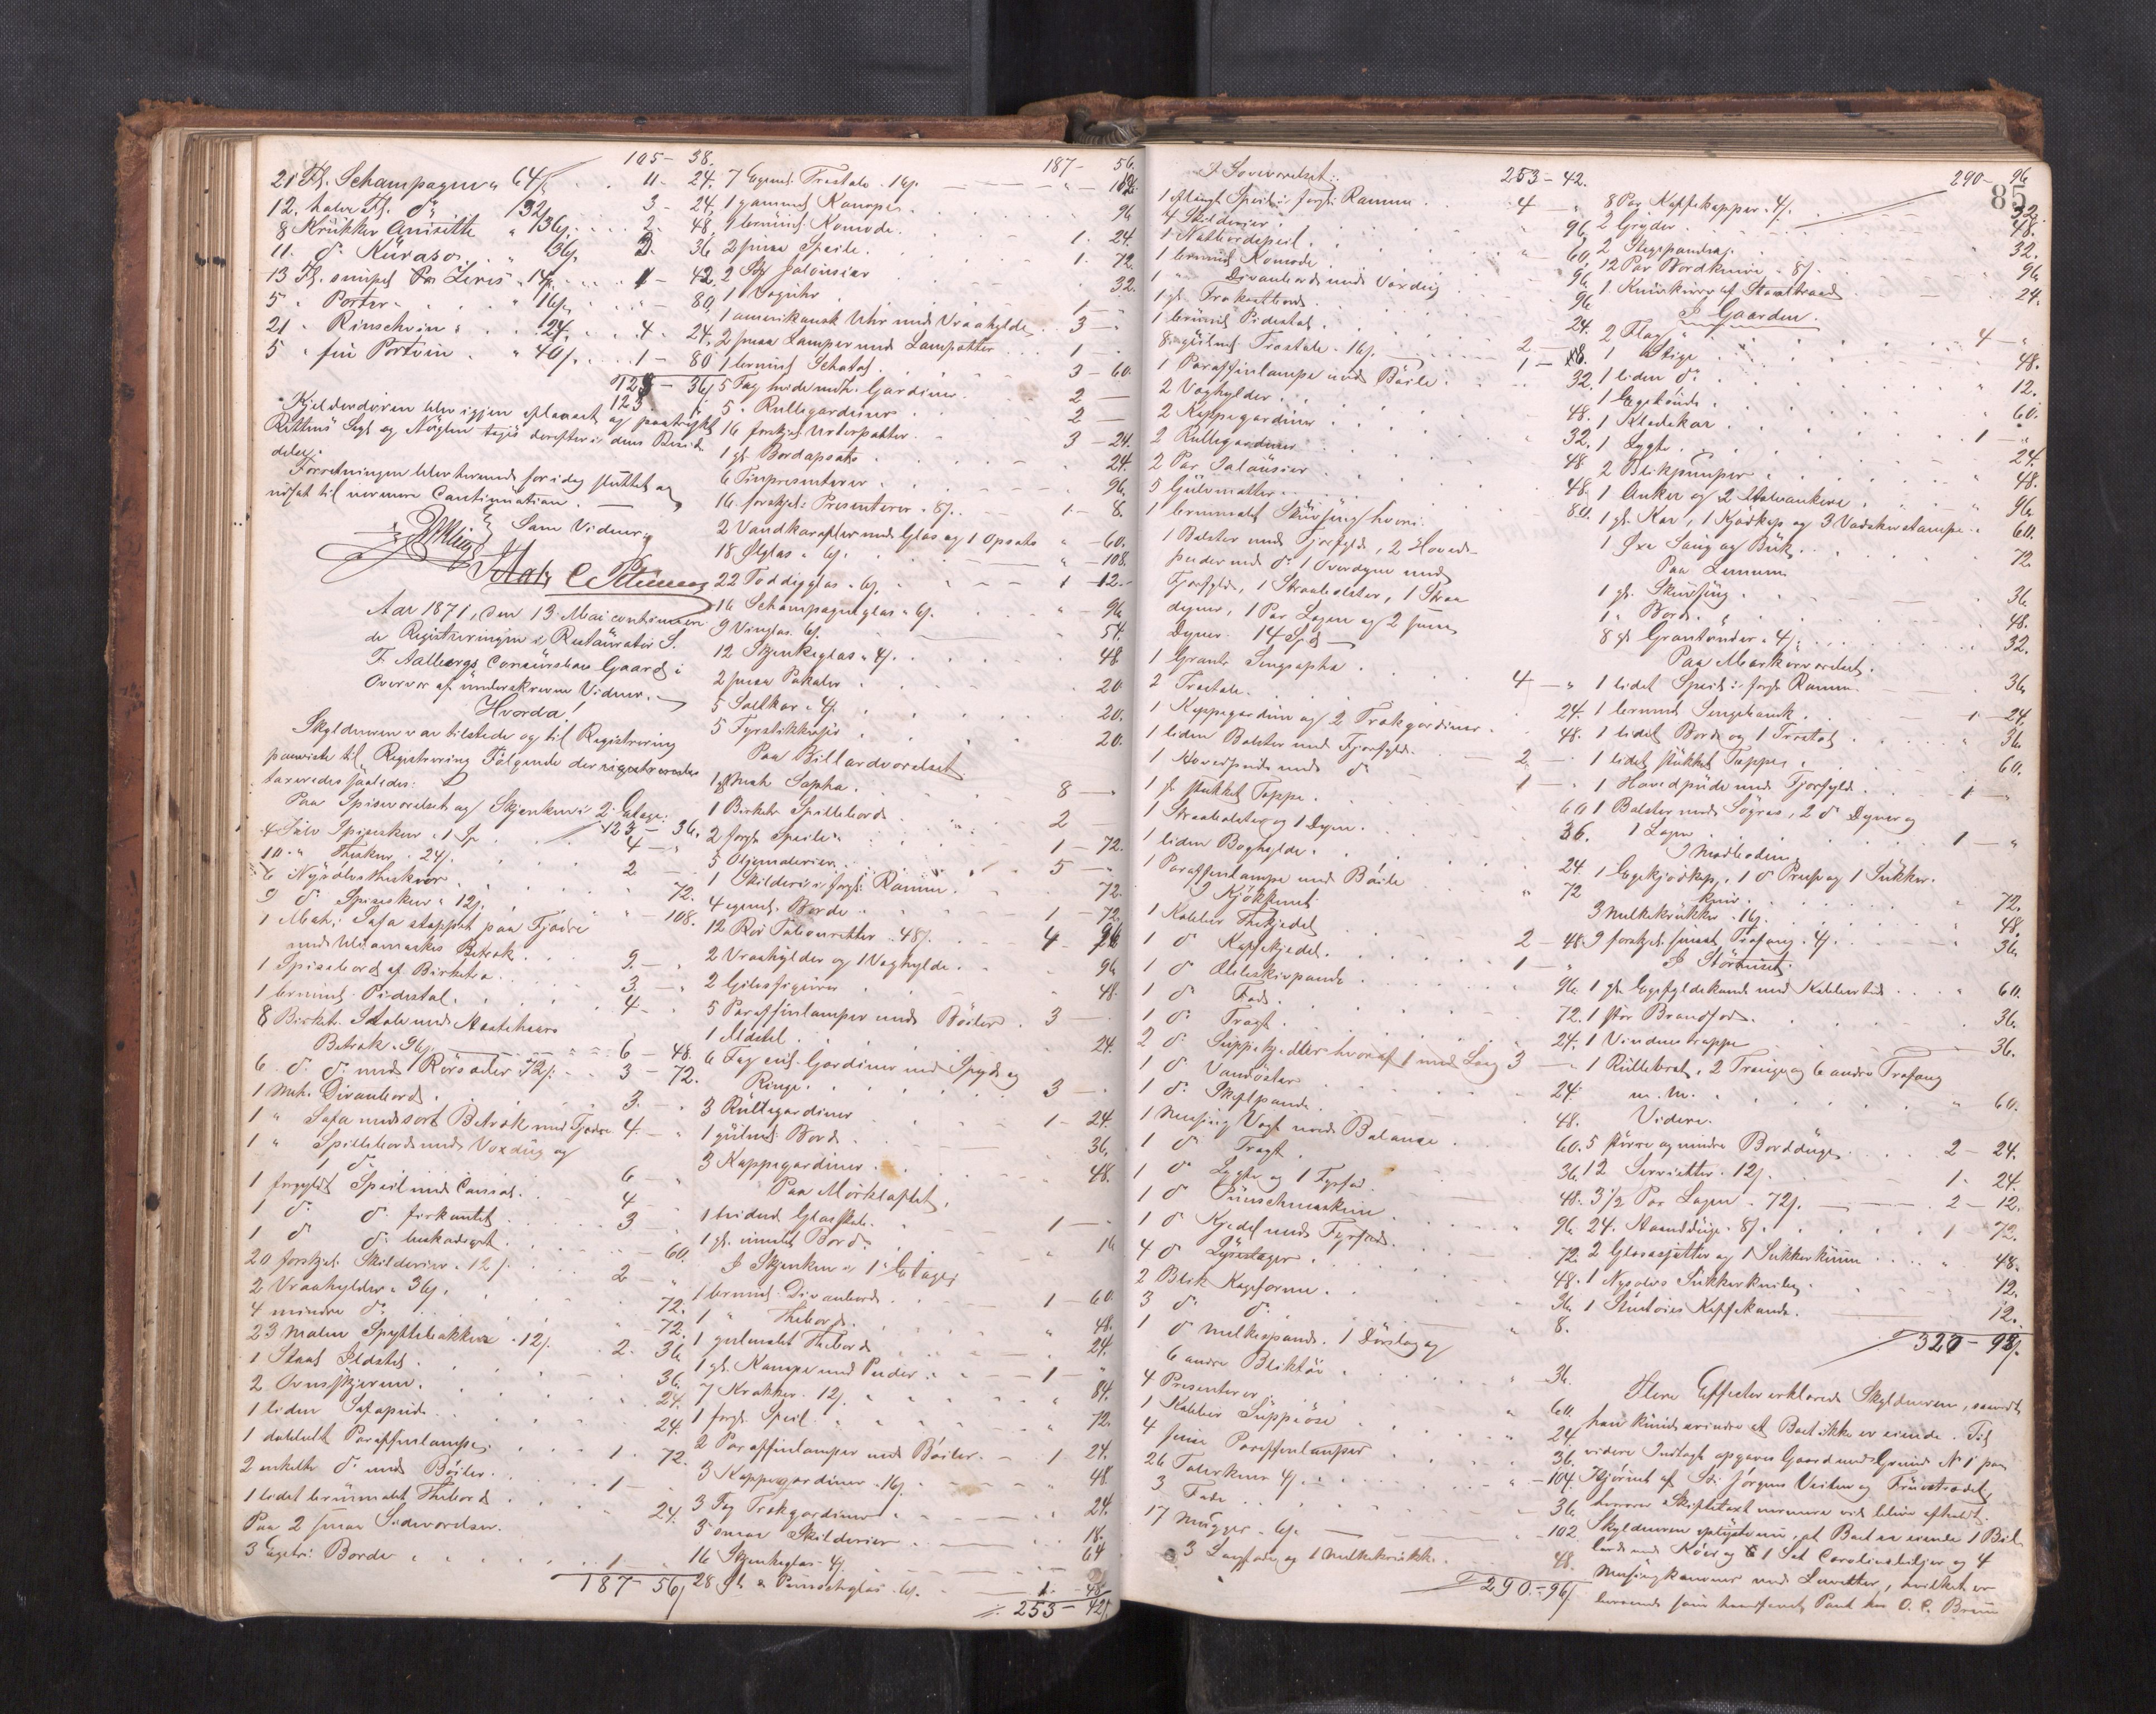 105 - 38.
21 Fl. Schampagne a 64 ß . . 11 - 24.
12. halve Fl. do 32 ß . . 3 - 24.
8 Krükker Anisette " 36 ß . . 2. 48.
11. do Küraso . . 36 ß. 3. 36
13 Fl. simpel Xeres " 14 ß. . . 1 - 42.
5 " Porter . . " 16 ß. . . 80.
21 " Rinschvin " . . 24. . . 4. 24.
5 " fin Portvin . " 40 ß. . . 1 - 80
123 - 36 ß
Kjelderdøren blev igjen aflaaset og paatrykt
Rettens Segl og Nøglen toges derefter i dens Besid-
delse.
Forretningen blev hermed for idag sluttet og
udsat til nærmere Continuation.
Som Vidner
Aar 1871, den 13 Mai continuere-
de Registreringen i Restauratør S.
F. Aalborgs Concursboes Gaard i
Overvær af underskrevne Vidner.
Hvorda!
Skyldneren var tilstede og til Registrering
paaviste til Registrering Følgende der registreredes
taxeredes saaledes:
Paa Spiseværelset og Skjenken i 2. Etage.
123 - 36.
4 Sølv Spiseskeer a 1 Sp . . 4 - "
10 " Theskeer . 24 ß. . . 2 -
6 Nysølvs Theskeer . . 72.
9 do Spiseskeer a 12 ß. . . " - 108.
1 Mah. Sofa stoppet paa Fjædre
med Uldamaskes Betræk . . 9. - "
1 Spisebord af Birketræ . . 3. - "
1 brunmalt Pidestal . . 4 - "
8 Birketr. Stole med Hestehaars
Betræk a 96 ß. . . 6 - 48.
6 do do med Rørsæder 72 ß. . . 3 - 72.
1 Mah. Divanbord . . 3. - "
1 " Sofa med sort Betræk med Fjædre 4. - "
1 " Spillebord med Voxdug og
1 do . . 6 - "
1 forgyldt Speil med Consol. . . 4 -
1 do do firkantet . . 3
1 do do beskadiget . . 60.
20 forskjel. Skilderier . 12 ß. . . 2 - "
2 Vraahylder a 36 ß. . . 72.
4 mindre do . . 72.
23 malede Spyttebakker . 12 ß. . . 2. 36
1 Staal Ildsted . . 36.
2 Ovnsskjerme . . 24.
1 liden Sofapude . . 24.
1 dobbelt Paraffinlampe . . 1. 72.
2 enkelte do med Bøiler . . 1 -
1 lidet brunmalet Thebord . . 24.
Paa 2 smaa Sideværelser.
3 Egetr. Borde . . 1 -
187 - 56 ß
187 - 56.
7 Egemal. Træstole . 16 ß. . . " - 112.
1 gammel Kanape . . 96
1 brunmal. Komode . . 1. 24.
2 smaa Speile . . 1. 72.
2 Sæt Jalousier . . 32.
1 Væguhr . . 1 -
1 amerikansk Uhr med Vraahylde . . 3 -
2 smaa Lamper med Lampetter . . 1 -
1 brunmal. Schatol . . 3 - 60.
5 Fag hvide med. Gardiner . . 2 -
5 " Rullegardiner . . 2 -
16 forskjel. Urtepotter . . 3 - 24.
1 gl. Bordopsats . . 24.
6 Tinpresenterer . . 96.
16 forskjel. Presenterer . 8 ß. . . 1 - 8.
2 Vandkarafler med Glas og 1 Opsats " - 60.
18 Ølglas a 6 ß. . . " - 108.
22 Toddyglas . 6 ß. . . 1 - 12.
16 Schampagneglas a 6 ß. . . " - 96
9 Vinglas 6 ß. . . 54.
12 Skjenkeglas a 4 ß. . . 48
2 smaa Pokaler . . 20
5 Saltkar a 4 ß. . . 20.
5 Fyrstikkhuse . . 20.
Paa Billardværelset
1 gl. Mah Sopha . . 8 -
1 Birketr. Spillebord . . 2 -
2 forgt. Speile . . 1 - 72.
5 Oljemalerier . . 5 - "
1 Skilderi i forgt. Ramme . . 72.
4 egemal. Borde . . 1 - 72.
12 Rør Tabouretter . 48 ß. . . 4 - 96
2 Vraahylder og 1 Væghylde . . 96
2 Gibsfigurer . . 48.
5 Paraffinlamper med Bøiler . . 3 -
1 Ildsted . . 24.
6 Fag enk. Gardiner med Spyd og
Ringe . . 3 -
3 Rullegardiner . . 1 - 24.
1 gulmal. Bord . . 36.
3 Kappegardiner . . 48.
Paa Mørkloftet.
1 hvidmal. Glasskab . . 1 -
1 gl. umalet Bord . . 16
I Skjenken i 1. Etage
1 brunmal. Divanbord . . 1 - 60
1 " Thebord . . 48.
1 gulmalet Thebord . . 24.
1 gl. Kanape med Puder . . 1 - "
7 Krakker . 12 ß. . . 84.
1 forgt. Speil . . 72.
2 Paraffinlamper med Bøiler . . 1 24.
3 Kappegardiner . 16 ß. . . 48
3 Fag Trækgardiner . . 24.
3 smaa Skilderier . . 18.
16 Skjenkeglas . 4 ß. . . 64
28 gl. a Punscheglas . 6 ß. . . 1. - 48
253 - 42 ß.
I Soveværelset:
253 - 42.
1 aflangt Speil i forgt. Ramme . . 4 - "
4 Skilderier . . 96.
1 Natbordspeil . . 60.
1 brunmal. Komode . . 96
1 " Divanbord med Voxdug . . 96
1 gl. Trækasbord . . 24.
1 brunmal. Pidestal . . 2 -
8 gulmal. Træstole . 16 ß. . . 1 - 8.
1 Paraffinlampe med Bøile . . 32.
2 Væghylder
2 Kappegardiner . . 48.
2 Rullegardiner . . 32.
2 Par Jalousier . . 48.
5 Gulvmatter . . 48.
1 brunmalt Skuvseng hvori . . 80.
1 Bolster med Fjerfyld, 2 Hoved-
puder med do 1 Overdyne med
Fjerfyld, 1 Straabolster, 1 Straa
dyner, 1 Par Lagen og 2 smaa
Dyner 14 Spd
1 Grants Sengsopha . . 4 - "
2 Træstole . . 24.
1 Kappegardin og 2 Trækgardiner . . 48.
1 liden Bolster med Fjerfyld . . 2. -
1 Hovedpude med do . . 1 -
1 gl. stukket Teppe . . 60
1 Straabolster og 1 Dyne . . 36.
1 liden Boghylde . . 24.
1 Paraffinlampe med Bøile . . 72
I Kjøkkenet
1 Kobber Thekjedel . . 2 - 48.
1 do Kaffekjedel . . 1 - "
1 do Æbleskivpande . . 96.
1 do Fad . . 72.
1 do Tragt . . 24.
2 do Suppekjedler hvoraf 1 med Laag 3 - "
1 do Vandøser . . 24.
1 do Skaftpande . . 48.
1 Messing Vægt med Balance . . 60.
1 do Tragt . . 36.
1 do Lygte og 1 Fyrfad . . 48.
1 do Punschmaskine . . 96
1 do Kjedel med Fyrfad . . 72.
4 do Lysestager . . 48.
2 Blik Kageforme . . 36.
3 do do . . 8.
1 do Melkespand. 1 Dørslag og
6 andre Bliktøi . . 36.
4 Presenterer . . 60.
1 Kobber Suppeøse . . 24.
4 smaa Paraffinlamper . . 36.
26 Talerkener 4 ß. . . - 104.
3 Fade . . 36.
17 Mugger . 6 ß. . . 102.
3 Langfade og 1 Melkekrukke . . 48.
290 - 96 ß
290 - 96
85
8 Par Kaffekopper . 4 ß. . . 32.
2 Gryder . . 48.
2 Stegepander . . 32.
12 Par Bordknive . 8 ß. . . 96
1 Knivkurv af Staaltraad . . 24.
I Gaarden.
2 Flag . . 4 - "
1 Stige . . 48.
1 liden do . . 12.
1 Egetønde . . 60.
1 Klædekar . . 1 - "
1 Lygte . . 24.
2 Blikpumper . . 48.
1 Anker og 2 Halvankere . . 96.
1 gl. Kar, 1 Kjødkop og 3 Vadskerstampe . 60.
1 Øxe Saug og Buk . . 72
Paa Lemmen
1 gl. Skuvseng . . 36
1 " Bord . . 48.
8 gl. Grantønder . 4 ß. . . 32.
Paa Markørværelset.
1 lidet Speil i forgt. Ramme . . 36
1 brunmal. Sengebænk . . 1 - 24.
1 lidet Bord og 1 Træstol . . 36
1 lidet stukket Teppe . . 60.
1 Hovedpude med Fjerfyld . . 1 - "
1 Bolster med Søgræs, 2 do Dyner og
1 Lagen . . 1 - "
I Madboden
1 Egekjødkop, 1 do Presse og 1 Sukker-
kniv . . 72.
3 Melkekrukker . 16 ß. . . 48.
9 forskjel. smaat Træfang . 4 ß. . . 36
I Størhuset
1 gl. Egefyldekande med Kobberbund . . 60.
1 stor Brandspand . . 36.
1 Vinduestrappe . . 36.
1 Rullebræt, 2 Trænge og 6 andre Træfang
m. m. . . 60.
Videre.
5 større og mindre Borddúger . . 2 - 24.
12 Servietter . 12 ß. . . 1. 24.
3 1/2 Par Lagen . 72 ß. . . 2 - 12.
24. Haanddúge . 8 ß. . . 1 72.
2 Glasassietter og 1 Sukkerkumme . . 48.
1 Nysølvs Sukkerknibe . . 12.
1 Stentøies Kaffekande . . 12.
320 - 98 ß.
Flere Effecter erklærede Skyldneren, saavidt
han kunde erindre at Boet ikke er eiende. Til
videre Indtægt opgaves Gaard med Grund No 1 paa
Hjørnet af St. Jørgens Veiten og Fruestrædet,
hvorom Skiftetaxt nærmere vil blive afholdt.
Skyldneren oplyste nu, at Boet er eiende 1 Bil-
lard med Køer og 1 Sæt Carolinebiljer og 4
Messingkanoner med Lavetter, hvilket er
beroende som haandfaaet Pant hos O. C. Bruun